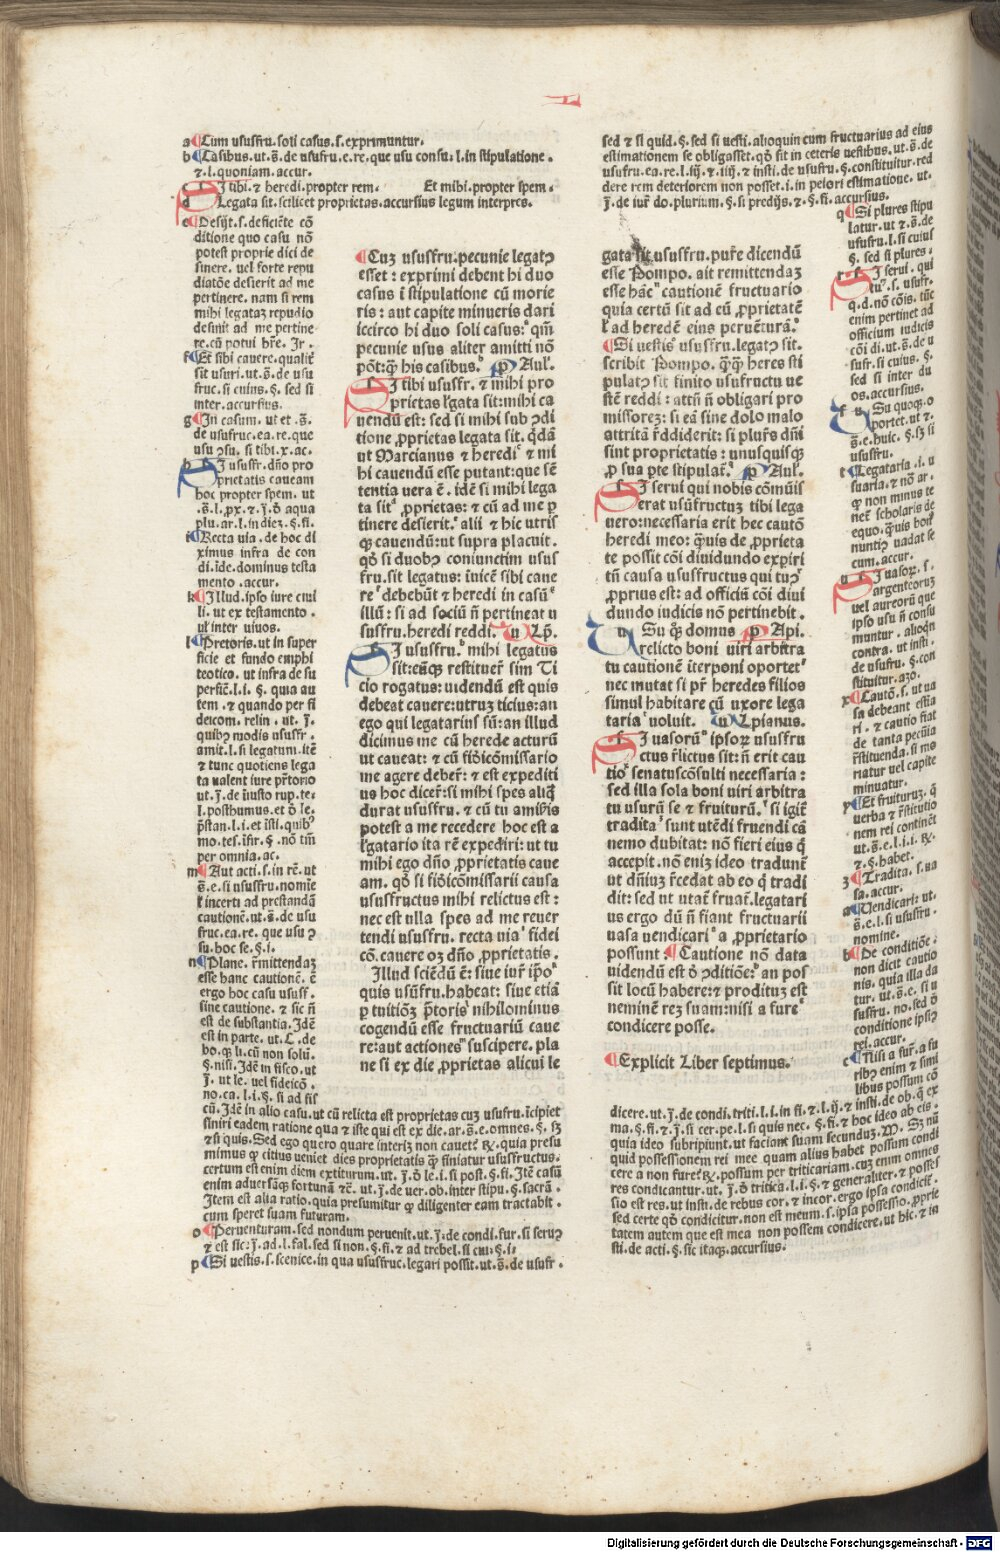 a Cum ususfru. soli casus. s. exprimuntur.
b Casibus. ut. s̄. de usufru. e. re. que usu consu. l. in stipulatione.
⁊. l. quoniam. accur.
c Si tibi. ⁊ heredi. propter rem. Et mihi. propter spem.
d Legata sit. scilicet proprietas. accursius legum interpres.
e Desijt. s. deficiēte cō
ditione quo casu nō
potest proprie dici de
sinere. uel forte repu
diatōe desierit ad me
pertinere. nam si rem
mihi legataȝ repudio
desinit ad me pertine
re. cū potui hr̄e. Jr.
f Et sibi cauere. qualit̄
sit usuri. ut. s̄. de usu
fruc. si cuius. §. sed si
inter. accursius.
g In casum. ut et. s̄.
de usufruc. ea. re. que
usu ↄsu. si tibi. x. ac.
h Si ususfr. dn̄o pro
prietatis caueam
hoc propter spem. ut
i Recta uia. de hoc di
ximus infra de con
di. ide. dominus testa
mento. accur.
k Illud. ipso iure ciui
li. ut ex testamento.
ul̄ inter uiuos.
l Pretoris. ut in super
ficie et fundo emphi
teotico. ut infra de su
perfic̄. l. i. §. quia au
tem. ⁊ quando per fi
deicom. relin. ut. J̄.
quibꝰ modis ususfr.
amit. l. si legatum. itē
⁊ tunc quotiens lega
ta ualent iure pr̄torio
ut. J̄. de īiusto rup. te.
l. posthumus. et ō le.
p̄stan. l. i. et īsti. quibꝰ
mo. tes. īfir. §. nō tm̄
per omnia. ac.
m Aut acti. s. in rē. ut
s̄. e. si ususfru. nomīe
ł incerti ad prestandā
cautionē. ut. s̄. de usu
fruc. ea. re. que usu ↄ
su. hoc se. §. i.
n Plane. r̄mittendaȝ
esse hanc cautionē. ē
ergo hoc casu ususf.
sine cautione. ⁊ sic n̄
est de substantia. Idē
est in parte. ut. C. de
bo. ꝗ li. cū non solū.
§. nisi. Idē in fisco. ut
J̄. ut le. uel fideicō.
no. ca. l. i. §. si ad fis
cū. Idē in alio casu. ut cū relicta est proprietas cuȝ usufru. īcipiet
siniri eadem ratione qua ⁊ iste qui est ex die. ar. s̄. e. omnes. §. sȝ
⁊ si quis. Sed ego quero quare interiȝ non cauetꝭ. quia presu
mimus ꝙ citius ueniet dies proprietatis ꝙ finiatur ususfructus.
certum est enim diem extiturum. ut. J̄. ō le. i. si post. §. fi. Itē casū
enim aduersāꝗ fortunā ⁊c̄. ut. J̄. de uer. ob. inter stipu. §. sacrā.
Item est alia ratio. quia presumitur ꝙ diligenter eam tractabit.
cum speret suam futuram.
o Peruenturam. sed nondum peruenit. ut. J̄. de condi. fur. si seruꝰ
⁊ est sic. J̄. ad. l. fal. sed si non. §. fi. ⁊ ad trebel. si cui. §. i.
p Si uestis. s. scenice. in qua ususfruc. legari possit. ut. s̄. de usufr.
Cuȝ ususfru. pecunie legatꝰ
esset: exprimi debent hi duo
casus ī stipulatione cū morie
ris: aut capite minueris dari
iccirco hi duo soli casus: qm̄
pecunie usus aliter amitti nō
pōt: ꝙ his casibus. Paul.
Si tibi ususfr. ⁊ mihi pro
prietas legata sit: mihi ca
uendū est: sed si mihi sub ↄdi
tione ꝓprietas legata sit. qdā
ut Marcianus ⁊ heredi ⁊ mi
hi cauendū esse putant: que sē
tentia uera ē. idē si mihi lega
ta sit ꝓprietas: ⁊ cū ad me p̄
tinere desierit alii ⁊ hic utris
ꝗ cauendū: ut supra placuit.
qō si duobꝰ coniunctim usus
fru. sit legatus: īuicē sibi caue
re debebūt ⁊ heredi in casū
illū: si ad sociū n̄ pertineat u
susfru. heredi reddi. Ulp̄.
Si ususfru. mihi legatus
sit: eūꝗ restituer̄ sim Ti
cio rogatus: uidendū est quis
debeat cauere: utruȝ ticius: an
ego qui legatarius sū: an illud
dicimus me cū herede acturū
ut caueat: ⁊ cū fidēicōmissario
me agere deber̄: ⁊ est expediti
us hoc dicer̄: si mihi spes aliq̄
durat ususfru. ⁊ cū tu amiseris
potest a me recedere hoc est a
legatario ita rē expediri: ut tu
mihi ego dn̄o ꝓprietatis caue
am. qō si fidēicōmissarii causa
ususfructus mihi relictus est:
nec est ulla spes ad me reuer
tendi ususfru. recta uia fidei
cō. cauere oȝ dn̄o ꝓprietatis.
Illud sciēdū ē: siue iur̄ ip̄o
quis usūfru. habeat: siue etiā
ꝑ tuitiōȝ p̄toris nihilominus
cogendū esse fructuariū caue
re: aut actiones suscipere. pla
ne si ex die ꝓprietas alicui le
sed ⁊ si quid. §. sed si uesti. alioquin cum fructuarius ad eius
estimationem se obligasset. qō sit in ceteris uestibus. ut. s̄. de
usufru. ea. re. l. iij. ⁊ iiij. ⁊ insti. de usufru. §. constituitur. red
dere rem deteriorem non posset. i. in peiori estimatione. ut.
J̄. de iur̄ do. plurium. §. si predijs. ⁊. §. fi. accursius.
gata sit ususfru. pur̄e dicendū
esse Pompo. ait remittendaȝ
esse hāc cautionē fructuario
quia certū sit ad eū ꝓprietatē
ł ad heredē eius peruēturā.
Si uestis ususfru. legatꝰ sit.
scribit Pompo. ꝙꝙ heres sti
pulatꝰ sit finito usufructu ue
stē reddi: attn̄ n̄ obligari pro
missoreȝ: si eā sine dolo malo
attritā r̄ddiderit: si plur̄s dn̄i
sint proprietatis: unusquisꝗ
ꝓ sua ꝑte stipulat̄. Paul.
Si serui qui nobis cōmūis
erat usūfructuȝ tibi lega
uero: necessaria erit hec cautō
heredi meo: ꝙuis de ꝓprieta
te possit cōi diuidundo expiri
tn̄ causa ususfructus qui tuꝰ
ꝓprius est: ad officiū cōi diui
dundo iudicis nō pertinebit.
Usu ꝗ domus Papi.
relicto boni uiri arbitra
tu cautionē īterponi oportet
nec mutat si pr̄ heredes filios
simul habitare cū uxore lega
taria uoluit. Ulpianus.
Si uasorū ipsoꝝ ususfru
ctus r̄lictus sit: n̄ erit cau
tio senatuscōsulti necessaria:
sed illa sola boni uiri arbitra
tu usurū se ⁊ fruiturū. si igit̄
tradita sunt utēdi fruendi cā
nemo dubitat: nō fieri eius q̄
accepit. nō eniȝ ideo tradunt̄
ut dn̄iuȝ r̄cedat ab eo q̄ tradi
dit: sed ut utat̄ fruat̄. legatari
us ergo dū n̄ fiant fructuarii
uasa uendicari a ꝓprietario
possunt: Cautione nō data
uidendū est ō ↄditiōe: an pos
sit locū habere: ⁊ prodituȝ est
neminē reȝ suam: nisi a fure
condicere posse.
Explicit Liber septimus.
q Si plures stipu
latur. ut ⁊. s̄. de
usufru. l. si cuius
§. sed si plures.
r Si serui. qui
tuꝰ. s. ususfr.
q. d. nō cōis. tūc
enim pertinet ad
officium iudicis
cōi di. ut. s̄. de u
sufr. si cuius. §.
sed si inter du
os. accursius.
Usu quoꝗ. o
portet. ut ⁊.
s̄. e. huic. §. sȝ si
ususfru.
t Legataria. i. u
suaria. ⁊ nō ar.
ꝙ non minus te
net̄ scholaris de
equo. ꝙuis boīs
nuntiꝰ uadat se
cum. accur.
u Si uasoꝝ. s.
argenteoruȝ
uel aureorū que
ipso usu n̄ consu
muntur. alioqn̄
contra. ut insti.
de usufru. §. con
stituitur. azo.
x Cautō. s. ut ua
sa debeant estīa
ri. ⁊ cautio fiat
de tanta pecūia
r̄stituenda. si mo
riatur uel capite
minuatur.
y Et fruituruȝ. q̄
uerba ⁊ r̄stitutio
nem rei continēt
ut. s̄. e. l. i. i. r̄.
⁊. §. habet.
z Tradita. s. ua
sa. accur.
a Uendicari. ut.
s̄. e. l. si ususfru.
nomine.
b De conditiōe.
non dicit cautio
nis. quia illa da
tur. ut. s̄. e. si u
susfru. no. sed ō
conditione ipsiꝰ
rei. accur.
c Nisi a fur̄. a fu
ribꝰ enim ⁊ simi
libus possum cō
dicere. ut. J̄. de condi. triti. l. i. in fi. ⁊ l. ij. ⁊ insti. de ob. q̄ ex
ma. §. fi. ⁊. J̄. si cer. pe. l. si quis nec. §. fi. ⁊ hoc ideo ab eis.
quia ideo subripiunt. ut faciant suam secunduȝ. M. Sȝ nū
quid possessionem rei mee quam alius habet possum condi
cere a non fure? r̄. possum per triticariam. cuȝ enim omnes
res condicantur. ut. J̄. ō tritica. l. i. §. ⁊ generaliter. ⁊ posses
sio est res. ut insti. de rebus cor. ⁊ incor. ergo ipsa condicit̄.
sed certe qō condicitur. non est meum. s. ipsa possessio. ꝓprie
tatem autem que est mea non possem condicere. ut hic. ⁊ in
sti. de acti. §. sic itaꝗ. accursius.
Digitalisierung gefördert durch die Deutsche Forschungsgemeinschaft - DFG